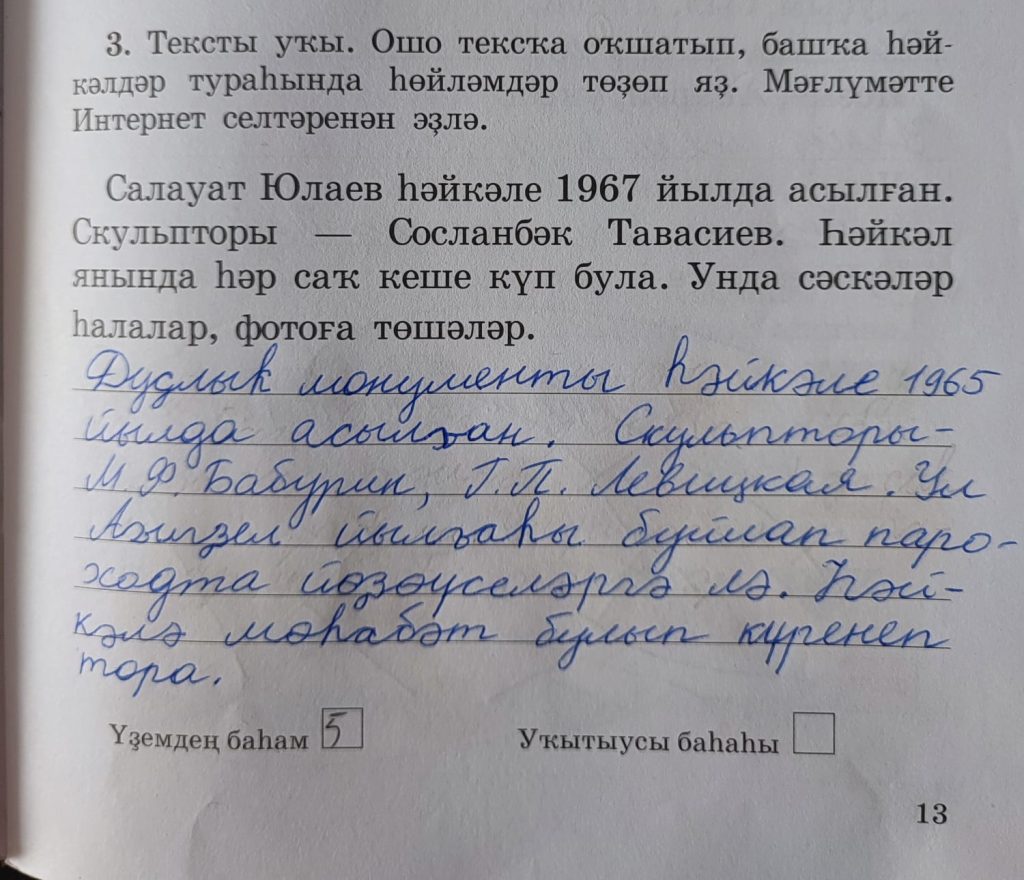 3. Тексты уҡы. Ошо текстҡа оҡшатып, башҡа һәй-
кәлдәр тураһында һөйләмдәр төҙөп яҙ. Мәғлүмәтте
Интернет селтәренән эҙлә.
Салауат Юлаев һәйкәле 1967 йылда асылған.
Скульпторы — Сосланбәк Тавасиев. Һәйкәл
янында һәр саҡ кеше күп була. Унда сәскәләр
һалалар, фотоға төшәләр.
Дуҫлыҡ монументы һәйкәле 1965
йылда асылған. Скульпторы-
М.Ф. Бабурин, Г.П. Левицкая. Ул
Ағиҙел йылғаһы буйлап паро-
ходта йөҙөүселәргә лә. Һәй-
кәлә мәһабәт булып күренеп
тора.
Үҙемдең баһам 5
Уҡытыусы баһаһы
13